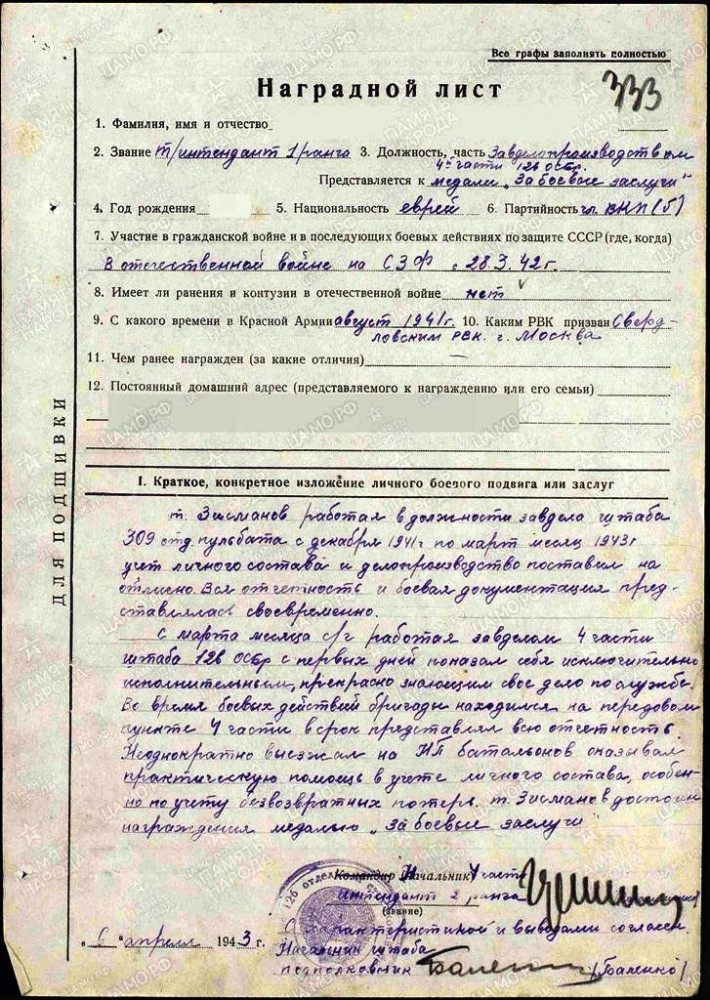 Все графы заполнять полностью
333
Наградной лист
1. Фамилия, имя и отчество
2. Звание т/интендант 1/ранга 3. Должность, часть Завделопроизводством
4й части 126 ОСБР.
Представляется к медали „За боевые заслуги"
4. Год рождения 5. Национальность еврей 6. Партийность чл. ВКП(б)
7. Участие в гражданской войне и в последующих боевых действиях по защите СССР (где, когда)
В отечественной войне на СЗФ с 28.3.42г.
8. Имеет ли ранения и контузии в отечественной войне нет
9. С какого времени в Красной Армии август 1941г. 10. Каким РВК призван Сверд-
ловским РВК. г. Москва
11. Чем ранее награжден (за какие отличия) —
12. Постоянный домашний адрес (представляемого к награждению или его семьи)
ДЛЯ ПОДШИВКИ
I. Краткое, конкретное изложение личного боевого подвига или заслуг
т. Зисманов работая в должности завдела штаба
309 отд. пульбата с декабря 1941г по март месяц 1943г
учет личного состава и делопроизводство поставил на
отлично. Вся отчетность и боевая документация пред-
ставлялась своевременно.
С марта месяца с/г работая завделом 4 части
штаба 126 ОСбр с первых дней показал себя исключительно
исполнительным, прекрасно знающим свое дело по службе.
Во время боевых действий бригады находился на передовом
пункте 4 части в срок представлял всю отчетность.
Неоднократно выезжал на КП батальонов оказывал
практическую помощь в учете личного состава, особен-
но по учету безвозвратных потерь. т. Зисманов достоин
награждения медалью „За боевые заслуги"
Командир (Начальник) 4 части
интендант 2 ранга
(звание)
С характеристикой и выводами согласен.
„6" апреля 1943 г.
Начальник штаба
подполковник Баленко /Баленко/
126 отдел